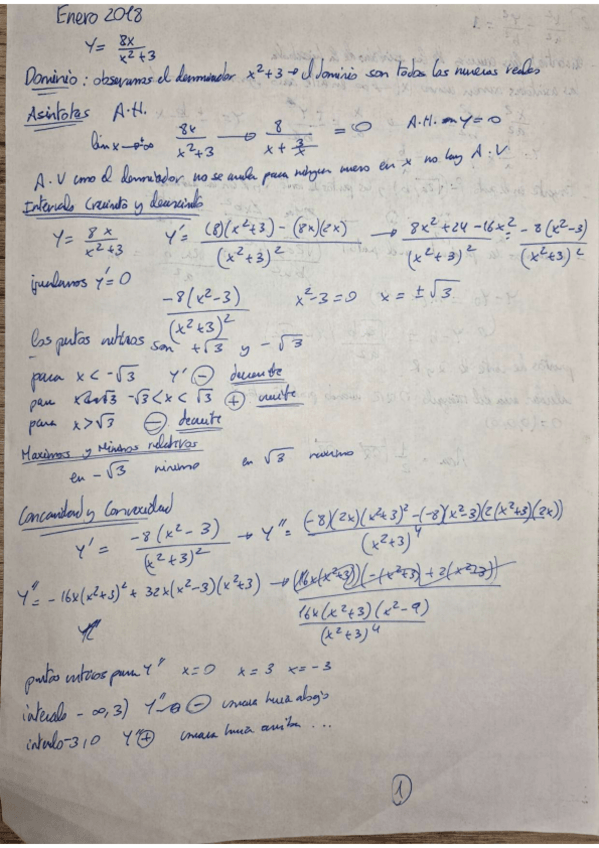 Enero 2018
Y = 8x / (x²+3)
Dominio: observamos el denominador x²+3 → el dominio son todos los numeros reales
Asintotas A.H.
lim x→±∞ 8x / (x²+3) → 8 / (x + 3/x) = 0 A.H. en Y=0
A.V como el denominador no se anula para ningun numero en x no hay A.V
Intervalo Creciendo y decreciendo
Y = 8x / (x²+3) Y' = ((8)(x²+3) - (8x)(2x)) / (x²+3)² → (8x²+24-16x²) / (x²+3)² = -8(x²-3) / (x²+3)²
igualamos Y'=0
-8(x²-3) / (x²+3)² x²-3=0 x = ±√3
los puntos criticos son +√3 y -√3
para x < -√3 Y' ⊖ decreciente
para -√3 < x < √3 ⊕ creciente
para x > √3 ⊖ decreciente
Maximos y Minimos relativos
en -√3 minimo en √3 maximo
Concavidad y Convexidad
Y' = -8(x²-3) / (x²+3)² → Y'' = ((-8)(2x)(x²+3)² - (-8)(x²-3)(2(x²+3)(2x))) / (x²+3)⁴
Y'' = -16x(x²+3)² + 32x(x²-3)(x²+3) →
16x(x²+3)(x²-9) / (x²+3)⁴
puntos criticos para Y'' x=0 x=3 x=-3
intervalo -∞, 3) Y'' ⊖ concava hacia abajo
intervalo -3, 0 Y'' ⊕ concava hacia arriba ...
1